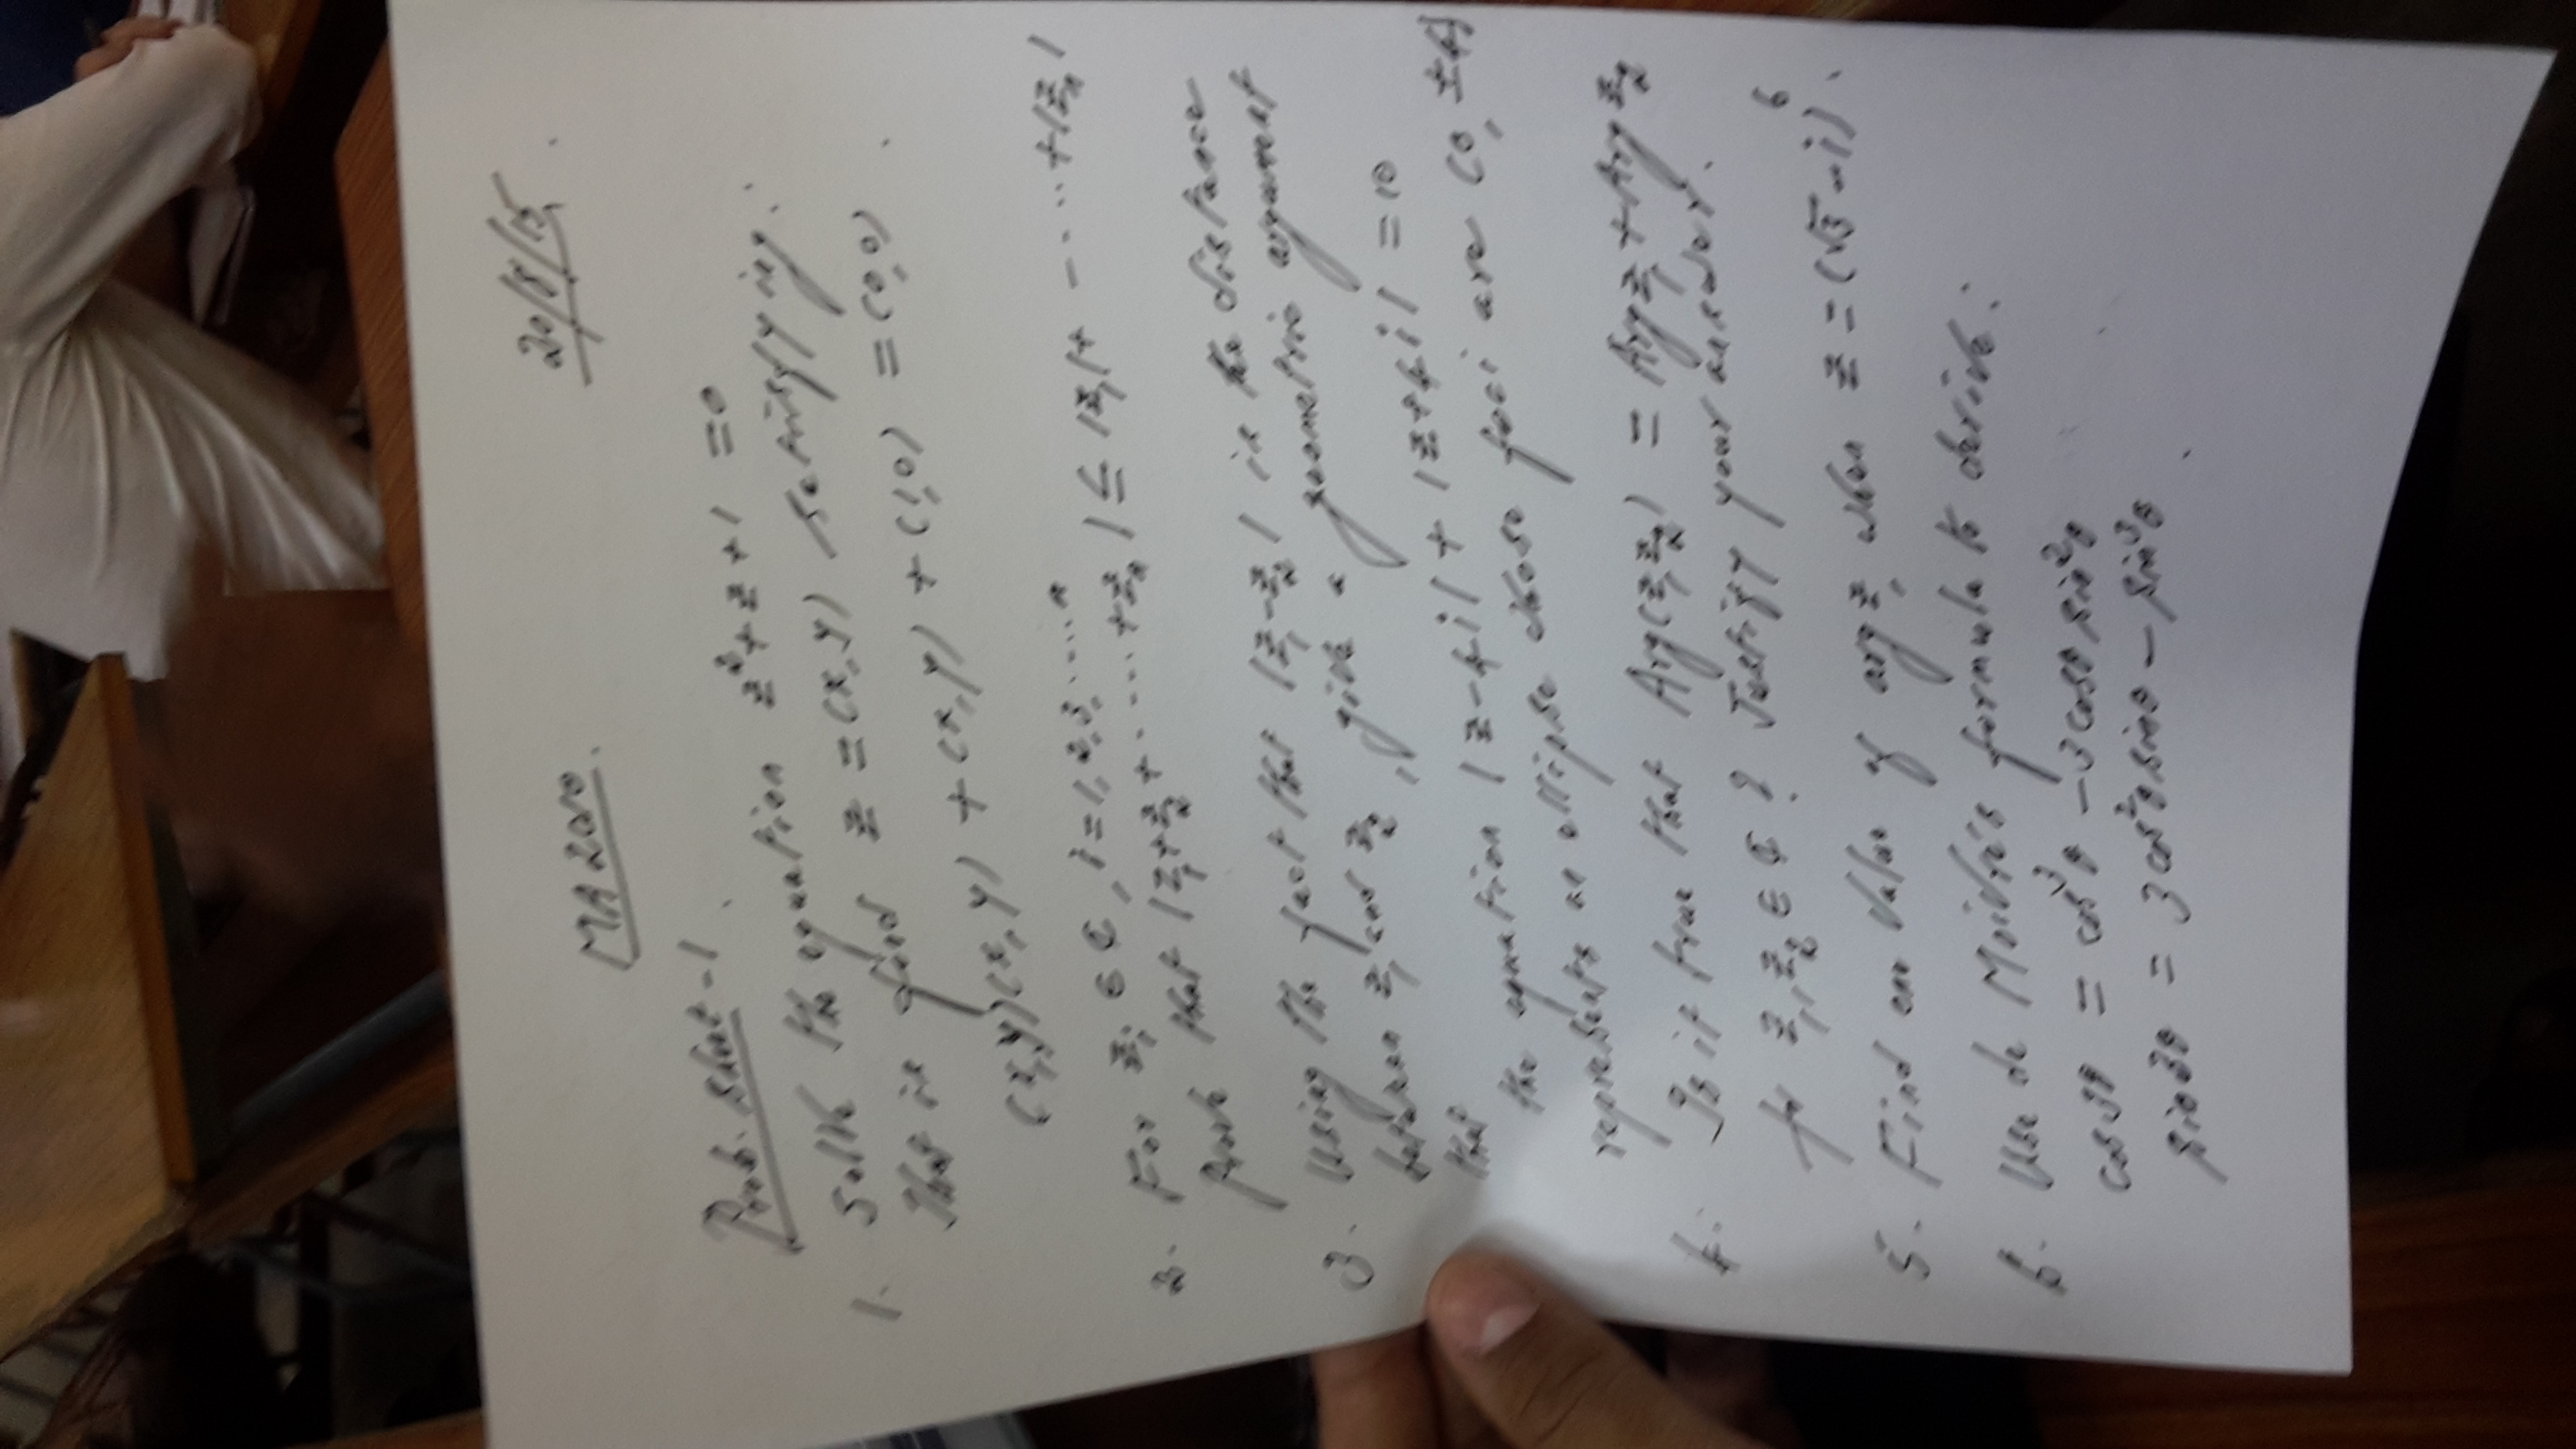 MA2010.
20/8/15.
Prob. Sheet-1.
1. Solve the equation z²+z+1 = 0
That is find z = (x,y) satisfying:
(x,y)(x,y) + (x,y) + (1,0) = (0,0).
2. For zᵢ ∈ ℂ, i=1,2,3,.....n
Prove that |z₁+z₂+.....+zₙ| ≤ |z₁|+ - ....+|zₙ|
3. Using the fact that |z₁-z₂| is the distance
between z₁ and z₂, give a geometric argument
that
the equation |z-4i| + |z+4i| = 10
represents an ellipse whose foci are (0, ±4)
4. Is it true that Arg(z₁z₂) = Arg z₁ + Arg z₂
for z₁, z₂ ∈ ℂ? Justify your answer.
5. Find one value of arg z, when z = (√3-i)⁶.
6. Use de Moivre's formula to derive:
cos3θ = cos³θ - 3cosθ sin²θ
sin3θ = 3cos²θ sinθ - sin³θ.